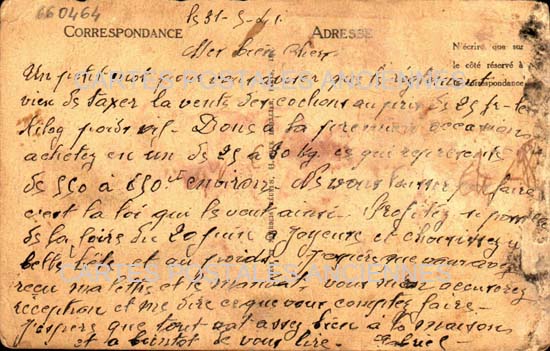 660464
le 31-5-41.
CORRESPONDANCE
ADRESSE
Mes bien chers
N'écrire que sur
le côté réservé à
la correspondance
CARTES POSTALES ANCIENNES
Un petit mot pour vous que le
vien de taxer la vente des cochons au prix de 25 fr le
Kilog poids vif - Donc à la première occasion
achetez en un de 25 à 30 kg. ce qui représente
de 550 à 650 environ. Ne vous laissez pas faire
c'est la loi qui le veut ainsi. Profitez si
de la foire du 20 juin a Joyeuse et choisissez
belle bête et au poids. J'espère que vous avez
CARTES POSTALES ANCIENNES
reçu ma lettre et le mandat, vous m'en accuserez
réception et me dire ce que vous comptez faire.
J'espère que tout va assez bien à la maison
et a bientôt de vous lire. Gabriel